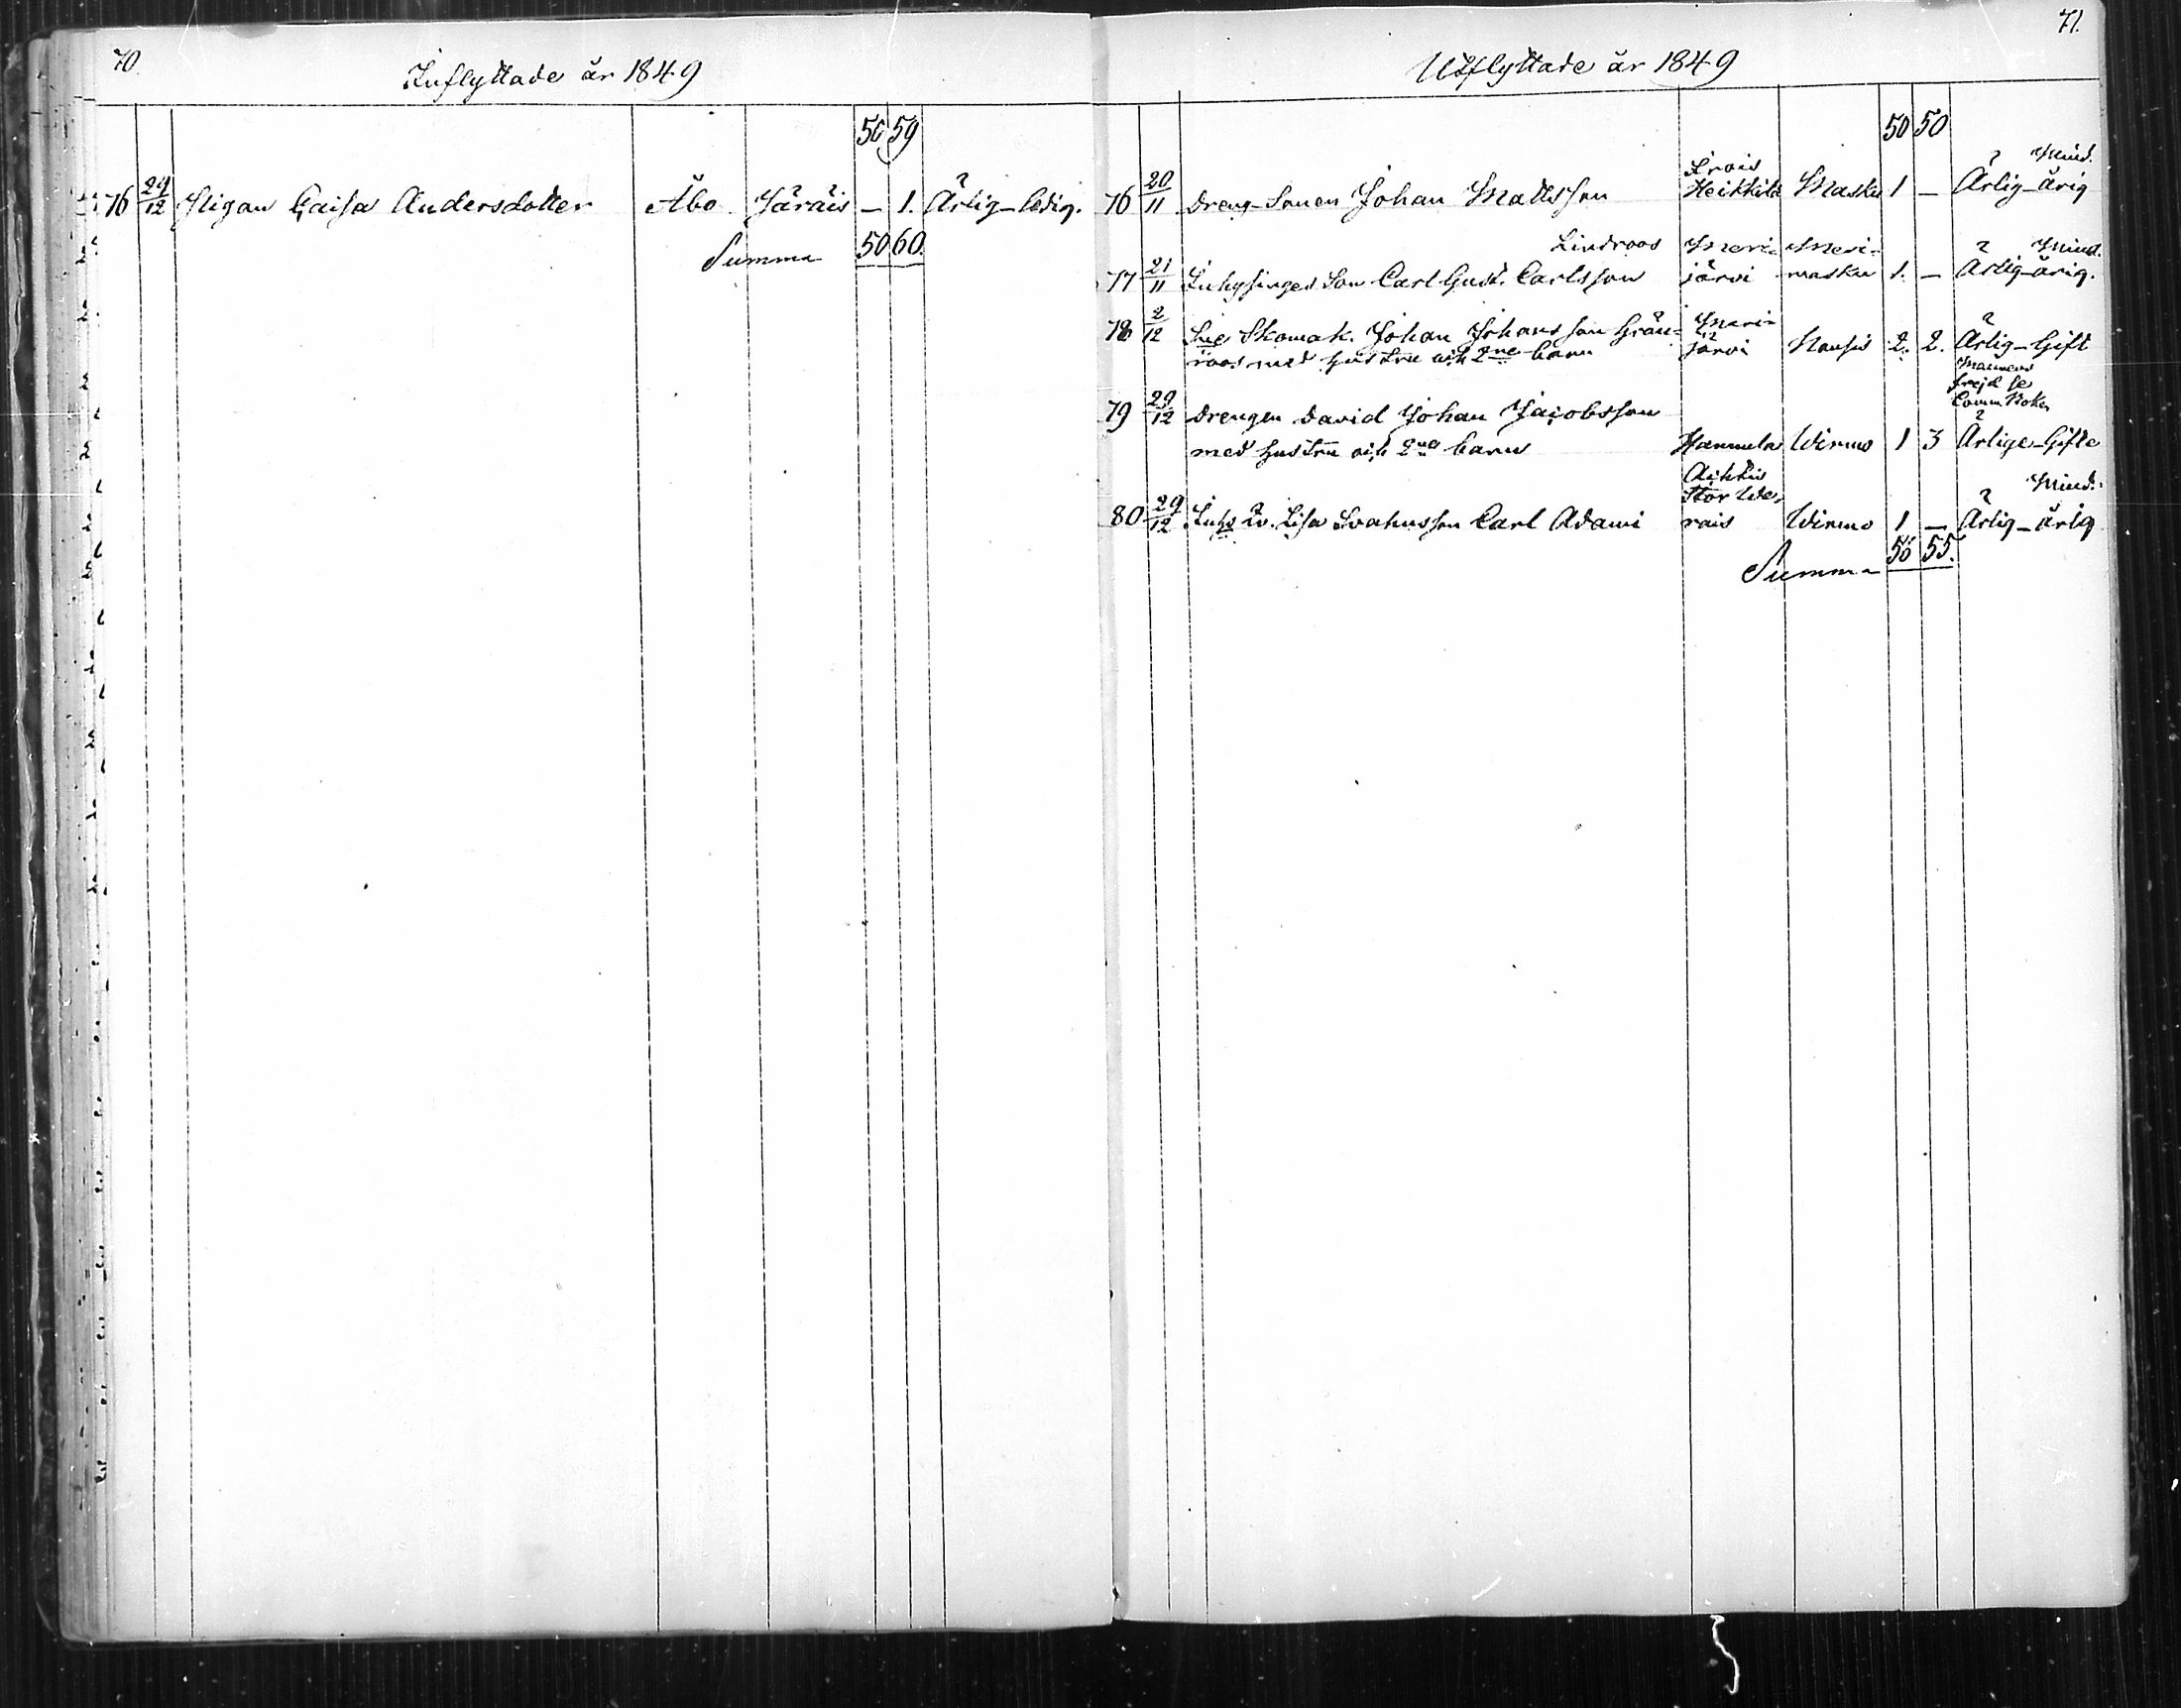 70.
Inflyttade år 1849
50 59
76 29/12 Pigan Caisa Andersdotter Åbo Järäis — 1. Ärlig – ledig.
Summa 50 60.
71.
Utflyttade år 1849
50 50
76 20/11 Dreng-Sonen Johan Mattsson Heikkilä Masku 1 — Ärlig – Mind. årig
Lindroos
77 21/11 Inhysinges Son Carl Gust. Carlsson Merijärvi Merimasku 1. — Ärlig – Mind. årig.
78 2/12 Skomak. Johan Johansson Grän-
roos med hustru och 2ne barn Merijärvi Nousis 2. 2. Ärlig – Gift
Mannens
frejd se
Comm. Boken
79 29/12 Drengen David Johan Jacobsson
med hustru och 2ne barn Hannula Wirmo 1 3 Ärlige – Gifte
80 29/12 Inhs Lisa Svahns son Carl Adami Wirmo 1 — Ärlig – Mind. årig
Summa 56 55.